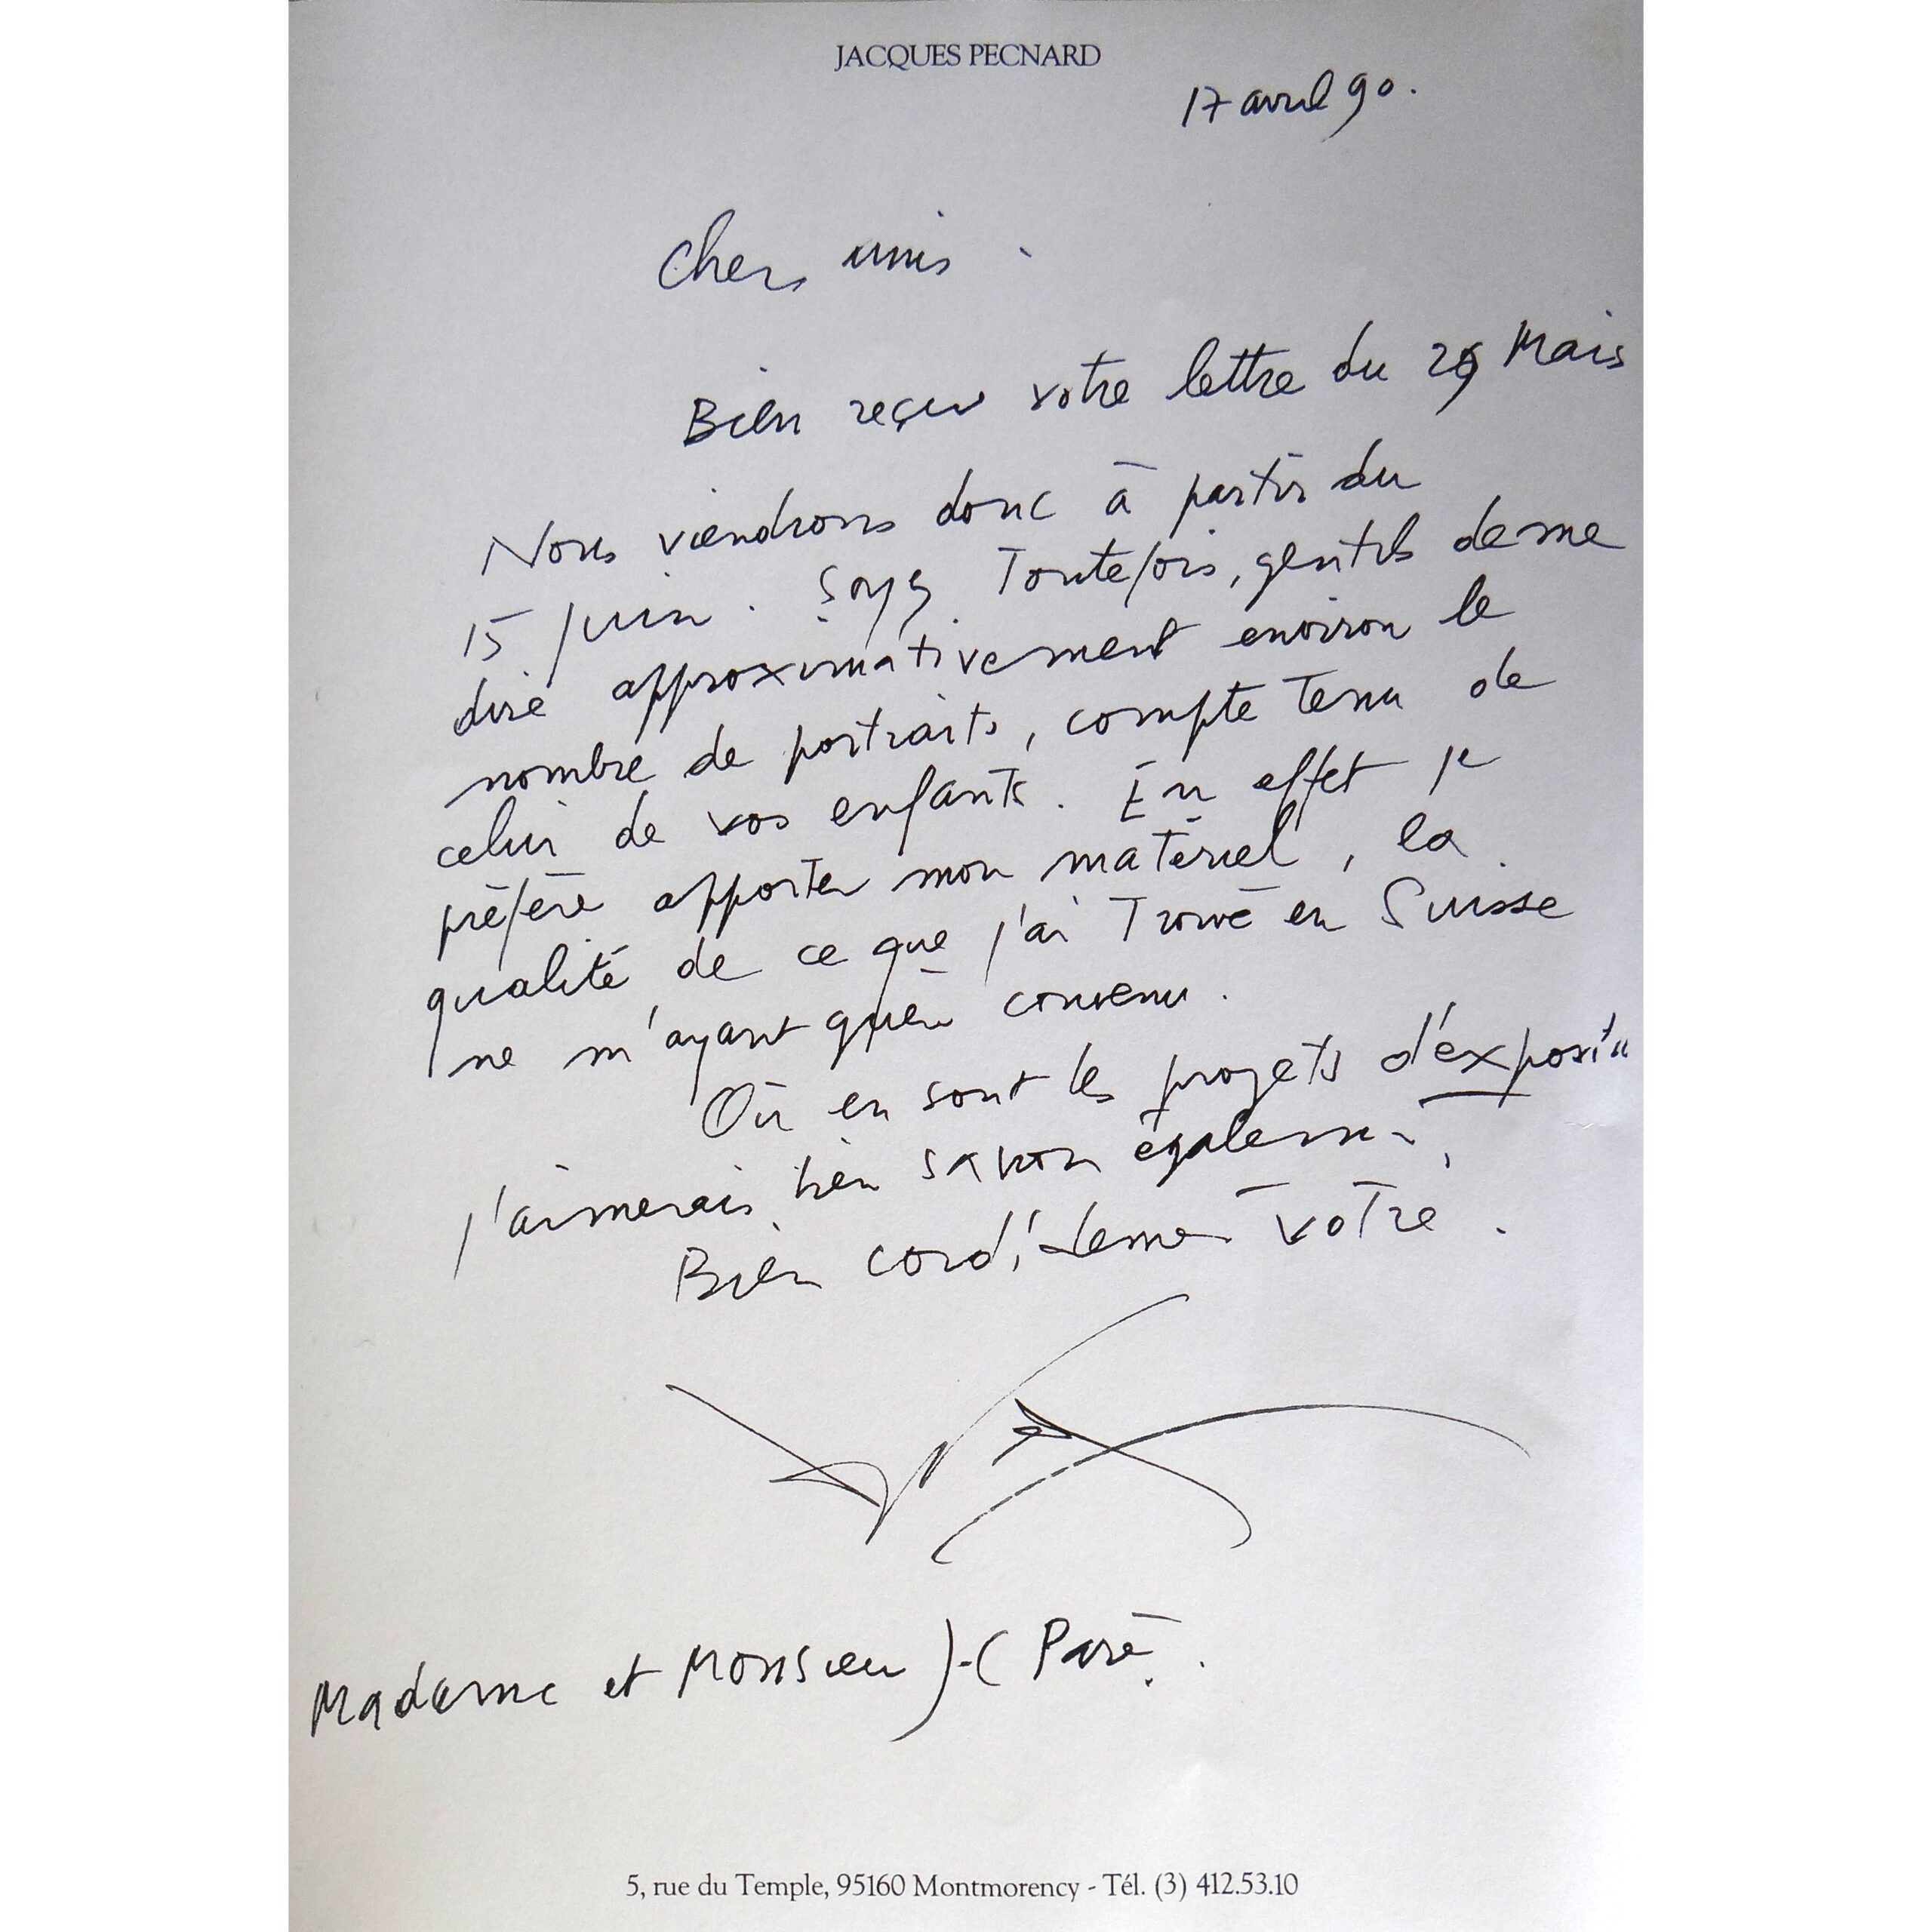 JACQUES PECNARD
17 avril 90.
Chers amis.
Bien reçu votre lettre du 29 Mars
Nous viendrons donc à partir du
15 juin. Soyez Toutefois, gentils de me
dire approximativement environ le
nombre de portraits, compte Tenu de
celui de vos enfants. En effet je
préfère apporter mon matériel, la
qualité de ce que j'ai Trouvé en Suisse
ne m'ayant guère convenu.
Où en sont les projets d'exposition
j'aimerais bien savoir également,
Bien cordialement vôtre.
Madame et Monsieur J-C Paré.
5, rue du Temple, 95160 Montmorency - Tél. (3) 412.53.10